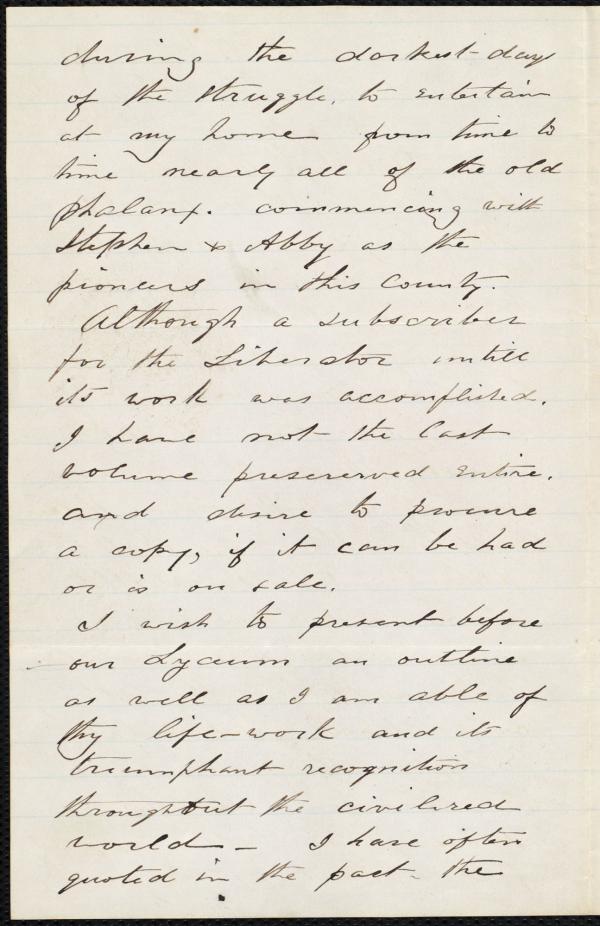 during the darkest days
of the struggle, to entertain
at my home from time to
time nearly all of the old
phalanx. commencing with
Stephen & Abby as the
pioneers in this County.
Although a subscriber
for the Liberator untill
its work was accomplished,
I have not the last
volume preserved entire,
and desire to procure
a copy, if it can be had
or is on sale.
I wish to present before
our Lyceum an outline
as well as I am able of
thy life-work and its
triumphant recognition
throughout the civilized
world - I have often
quoted in the past - the